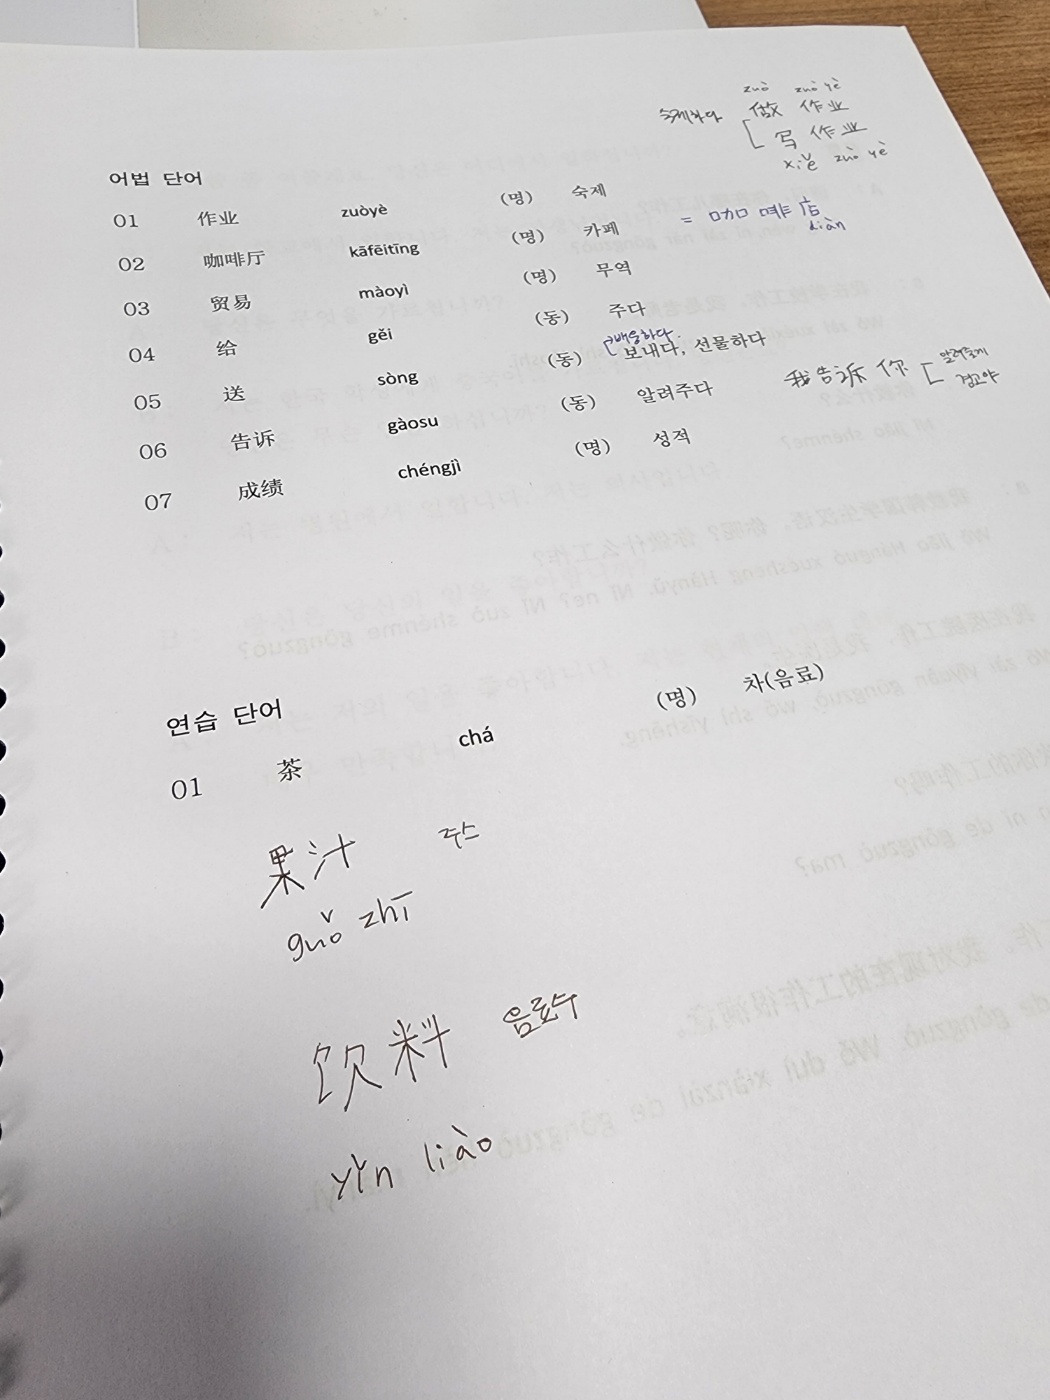 zuò zuò yè
숙제하다 做 作业
写 作业
xiě zuò yè
어법 단어
01 作业 zuòyè (명) 숙제
02 咖啡厅 kāfēitīng (명) 카페 = 咖啡店
diàn
03 贸易 màoyì (명) 무역
04 给 gěi (동) 주다
배웅하다.
05 送 sòng (동) 보내다, 선물하다
06 告诉 gàosu (동) 알려주다 我告诉 你 알려줄게
경고야
07 成绩 chéngjì (명) 성적
연습 단어
01 茶 chá (명) 차(음료)
果汁 주스
guǒ zhī
饮料 음료수
yǐn liào